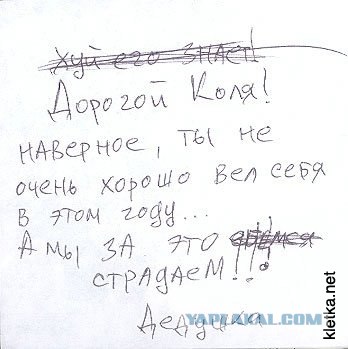 Хуй его знает!
Дорогой Коля!
наверное, ты не
очень хорошо вел себя
в этом году...
А мы за это ебемся
страдаем!!!
Дедушка
YAPLAKAL.COM
kletka.net